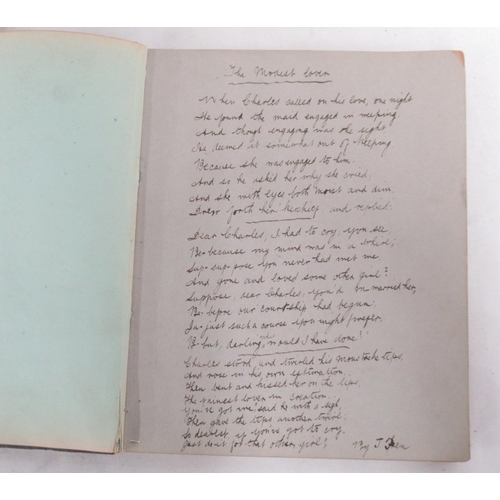 The Modest Lover
When Charles called on his love, one night
He found the maid engaged in weeping
And though engaging was the sight
He deemed it somewhat out of keeping.
Because she was engaged to him.
And so he asked her why she cried,
And she with eyes both moist and dim.
Drew forth her kerchief and replied.
Dear Charles, I had to cry, you see
Be-because my mind was in a whirl;
Sup-sup-pose you never had met me
And gone and loved some other girl?
Suppose, dear Charles, you'd married her,
Be-before our courtship had begun.
In-just such a course you might prefer,
B-but, darling, would I have done!
Charles stood, and twirled his moustache tips
And rose in his own estimation.
Then bent and kissed her on the lips,
The vainest lover in creation.
You've got me, said he with a sigh,
Then gave the tips another twirl.
So dearest, if you've got to cry,
Just do it for that other girl!
By J